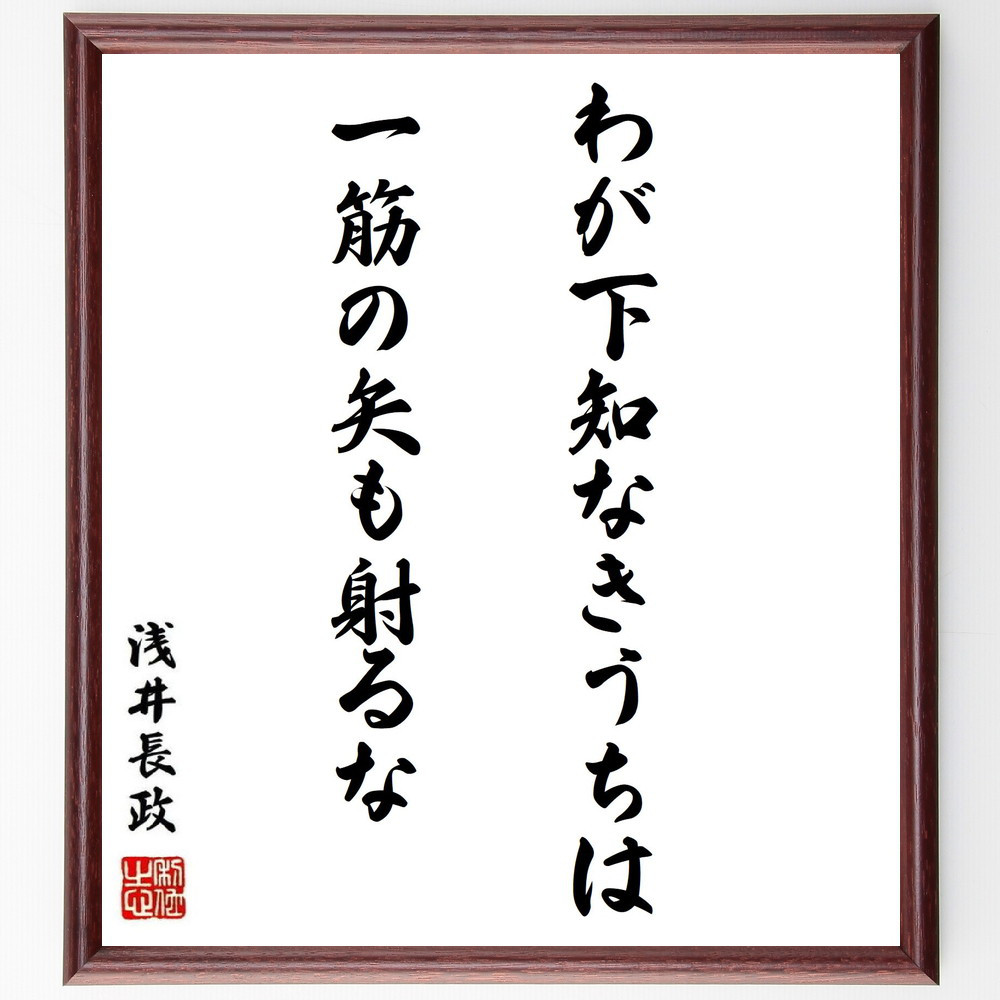 わが下知なきうちは
一筋の矢も射るな
浅井長政